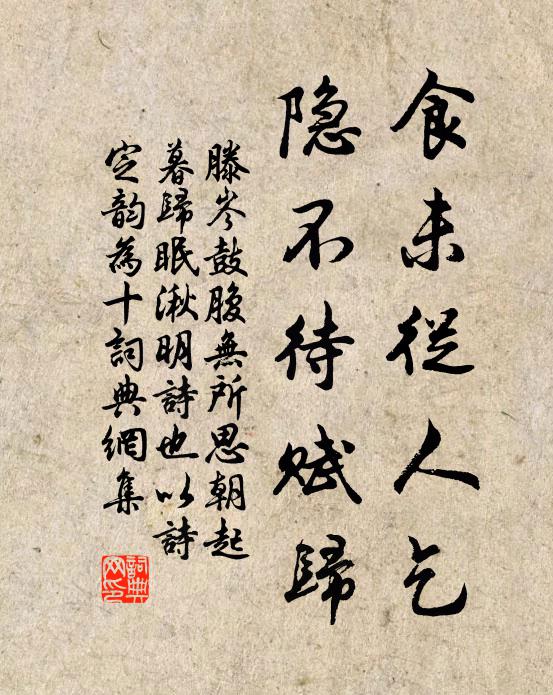 食未從人乞
隐不待赋歸
滕岑鼓腹無所思朝起
暮歸眠湫明詩也以詩
定韵為十詞典網集
詞典
网印